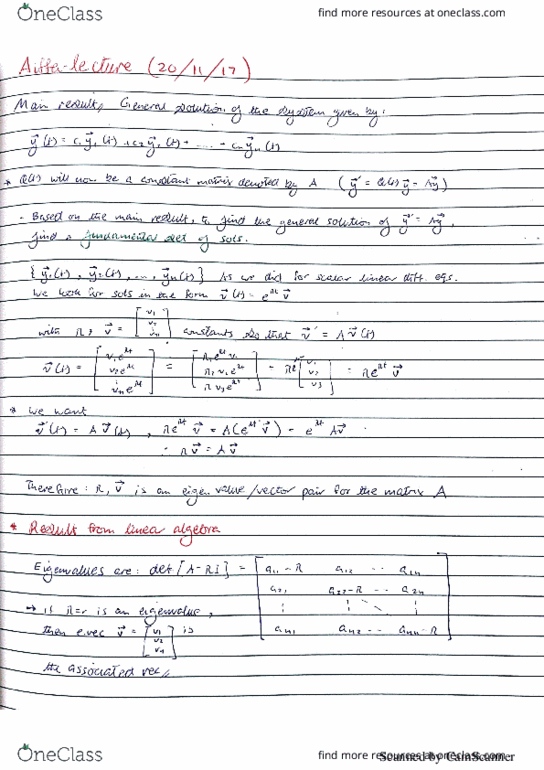 OneClass find more resources at oneclass.com
Diffa-lecture (20/11/17)
Main result, General solution of the system given by:
y⃗(t) = c₁y⃗₁(t) + c₂y⃗₂(t) + ..... + cₙy⃗ₙ(t)
* Q(t) will now be a constant matrix denoted by A (y⃗' = Q(t)y⃗ = Ay⃗)
- Based on the main result, to find the general solution of y⃗' = Ay⃗,
find a fundamental set of sols.
{y⃗₁(t), y⃗₂(t), ..., y⃗ₙ(t)} As we did for scalar linear diff. eqs.
we look for sols in the form v⃗(t) = e^{Rt} v⃗
with R, v⃗ = [v₁ v₂ vₙ] constants so that v⃗' = A v⃗(t)
v⃗'(t) = [v₁e^{Rt} v₂e^{Rt} ⋮ vₙe^{Rt}] = [R v₁ e^{Rt} R v₂ e^{Rt} R v₃ e^{Rt}] = Re^{Rt} [v₁ v₂ v₃] = Re^{Rt} v⃗
* we want
v⃗'(t) = A v⃗(t), Re^{Rt} v⃗ = A(e^{Rt} v⃗) = e^{Rt} A v⃗
= R v⃗ = A v⃗
Therefore: R, v⃗ is an eigen value/vector pair for the matrix A
* Result from linear algebra
Eigenvalues are: det [A-RI] = [a₁₁-R a₁₂ ... a₁ₙ
a₂₁ a₂₂-R ... a₂ₙ
→ if R=r is an eigenvalue,
then evec v⃗ = [v₁ v₂ vₙ] is aₙ₁ aₙ₂ ... aₙₙ-R]
the associated vec,
OneClass find more resources at oneclass.com
Scanned by CamScanner